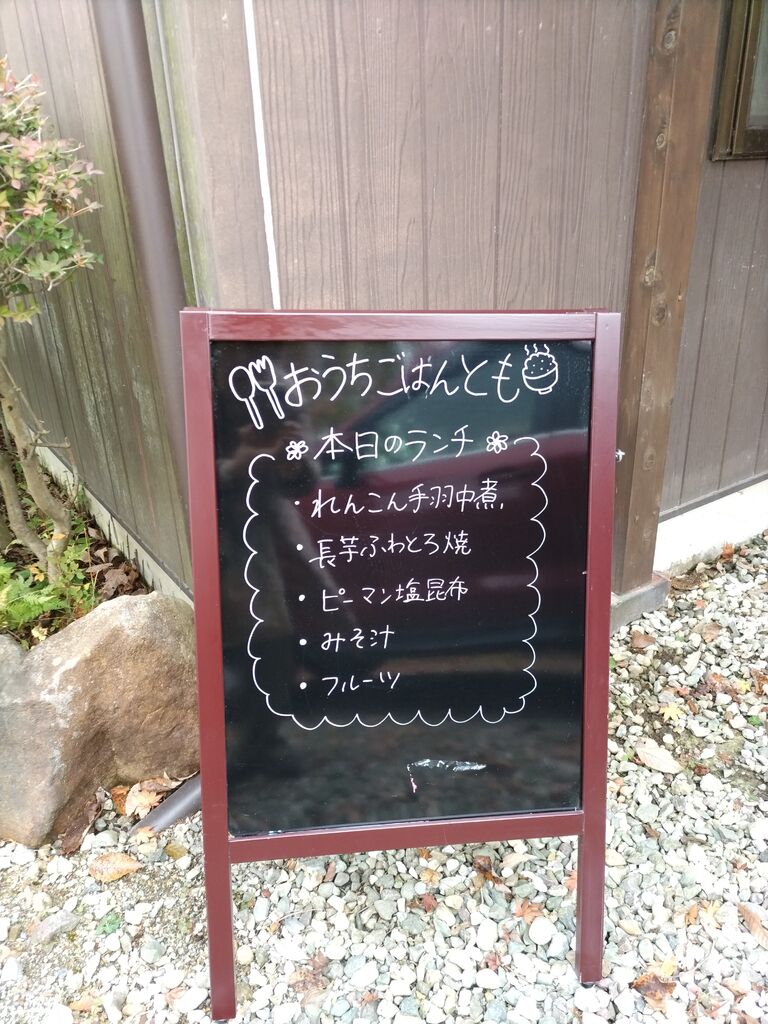 おうちごはんとも
本日のランチ
・れんこん手羽中煮
・長芋ふわとろ焼
・ピーマン塩昆布
・みそ汁
・フルーツ